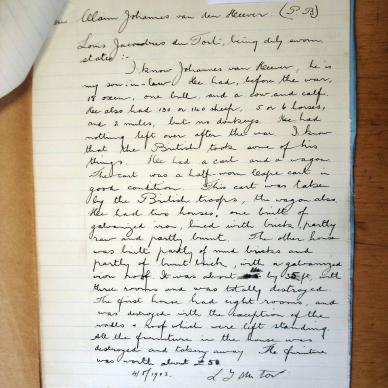 Claim Johannes van den Heever. (P.R)
Louis Jacobus du Toit, being duly sworn
states:-
I know Johannes van Heever, he is
my son-in-law. He had, before the war,
18 oxen, one bull, and a cow and calf.
He also had 130 or 140 sheep, 5 or 6 horses,
and 2 mules, but no donkeys. He had
nothing left over after the war. I know
that the British took some of his
things. He had a cart and a wagon.
The cart was a half-worn cape cart in
good condition. This cart was taken
by the British troops, the wagon also.
He had two houses, one built of
galvanized iron, lined with bricks partly
raw and partly burnt. The other house
was built partly of mud bricks and
partly of burnt brick, with a galvanized
iron roof. It was about by ft, with
three rooms and was totally destroyed.
The first house had eight rooms, and
was destroyed with the exception of the
walls & roof which were left standing.
All the furniture in the house was
destroyed and taken away. The furniture
was worth about £50
4/5/1903.